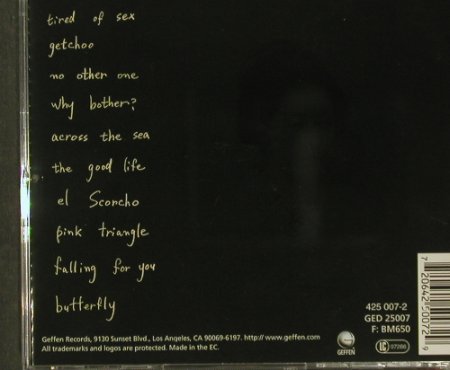 tired of sex
getchoo
no other one
why bother?
across the sea
the good life
el Scorcho
pink triangle
falling for you
butterfly
425 007-2
GED 25007
F: BM650
Geffen Records, 9130 Sunset Blvd., Los Angeles, CA 90069-6197. http://www.geffen.com
All trademarks and logos are protected. Made in the EC.
GEFFEN
LC 07266
7 20642 50072 9